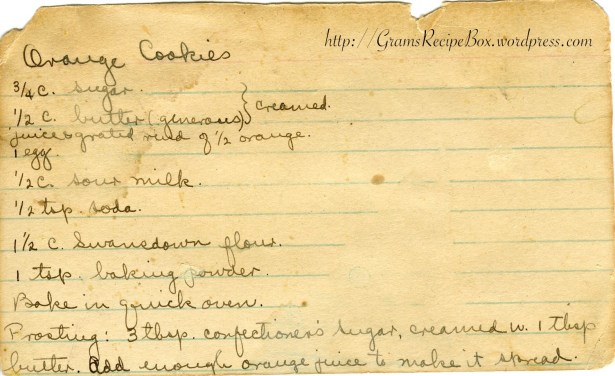 http://GramsRecipeBox.wordpress.com
Orange Cookies
3/4 c. sugar.
1/2 c. butter (generous) } creamed.
juice & grated rind of 1/2 orange.
1 egg.
1/2 c. sour milk.
1/2 tsp. soda.
1 1/2 c. Swansdown flour.
1 tsp. baking powder.
Bake in quick oven.
Frosting: 3 tbsp. confectioner's sugar, creamed w. 1 tbsp
butter. Add enough orange juice to make it spread.